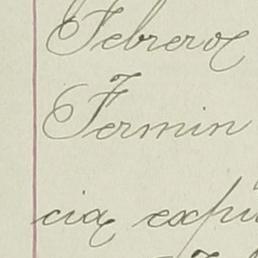 Febrero
Fermin
cia